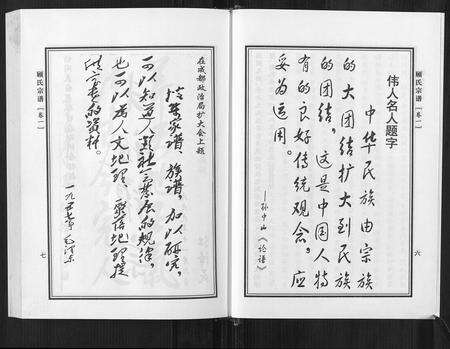 顾氏宗谱（卷二）
伟人名人题字
中华民族由宗族
的大团结扩大到民族
的团结，这是中国人特
有的良好传统观念。应
妥为运用。
——孙中山《论语》
六
在成都政治局扩大会上题
搜集家谱、族谱，加以研究，
可以知道人类社会发展的规律，
也可以为人文地理、聚落地理提
供宝贵的资料。
一九五七年 毛泽东
顾氏宗谱（卷二）
七